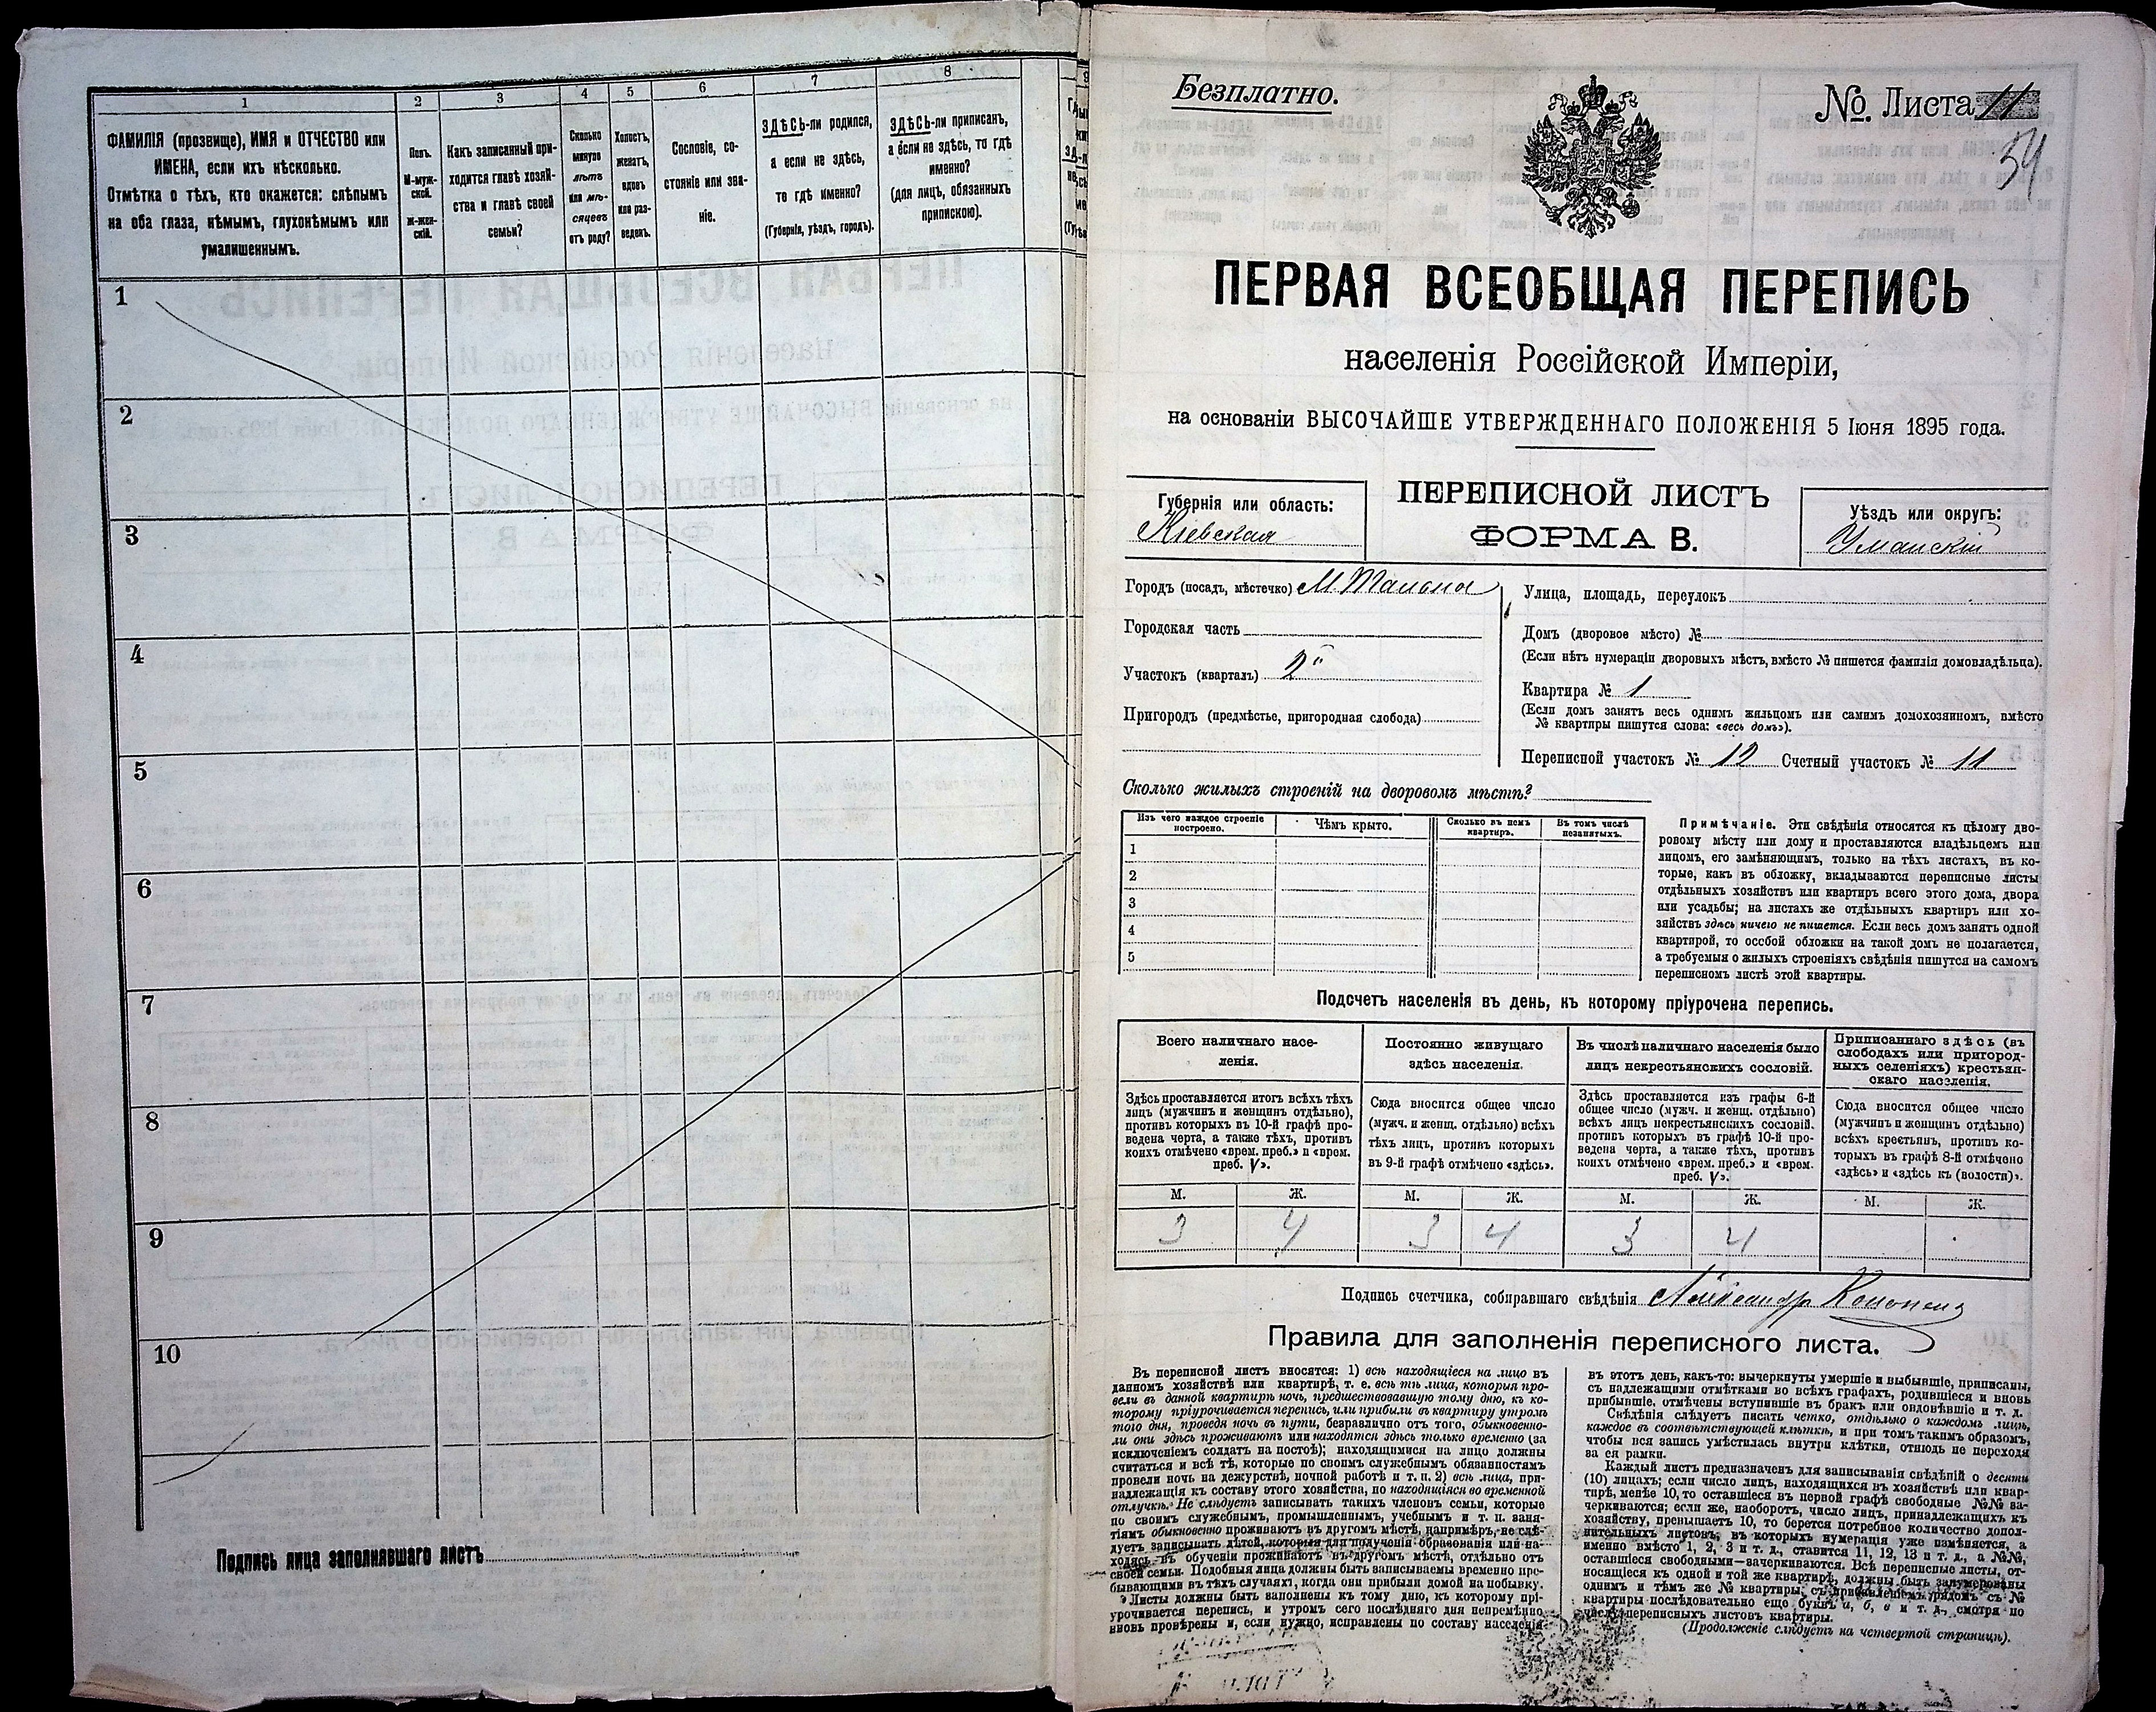 1
2
3
4
5
6
7
8
ФАМИЛІЯ (прозвище), ИМЯ и ОТЧЕСТВО или
ИМЕНА, если ихъ нѣсколько.
Отмѣтка о тѣхъ, кто окажется: слѣпымъ
на оба глаза, нѣмымъ, глухонѣмымъ или
умалишеннымъ.
Полъ.
М-муж-
ской.
ж-жен-
скій.
Какъ записанный при-
ходится главѣ хозяй-
ства и главѣ своей
семьи?
Сколько
минуло
лѣтъ
или мѣ-
сяцевъ
отъ роду?
Холостъ,
женатъ,
вдовъ
или раз-
веденъ.
Сословіе, со-
стояніе или зва-
ніе.
ЗДѢСЬ-ли родился,
а если не здѣсь,
то гдѣ именно?
(Губернія, уѣздъ, городъ).
ЗДѢСЬ-ли приписанъ,
а если не здѣсь, то гдѣ
именно?
(для лицъ, обязанныхъ
припискою).
1
2
3
4
5
6
7
8
9
10
Подпись лица заполнявшаго листъ
Безплатно.
№. Листа 11
54
ПЕРВАЯ ВСЕОБЩАЯ ПЕРЕПИСЬ
населенія Россійской Имперіи,
на основаніи ВЫСОЧАЙШЕ УТВЕРЖДЕННАГО ПОЛОЖЕНІЯ 5 Іюня 1895 года.
Губернія или область:
Кіевская
ПЕРЕПИСНОЙ ЛИСТЪ
ФОРМА В.
Уѣздъ или округъ:
Уманскій
Городъ (посадъ, мѣстечко) М. Тальное
Городская часть
Участокъ (кварталъ) 2й
Пригородъ (предмѣстье, пригородная слобода)
Улица, площадь, переулокъ
Домъ (дворовое мѣсто) №
(Если нѣтъ нумераціи дворовыхъ мѣстъ, вмѣсто № пишется фамилія домовладѣльца).
Квартира № 1
(Если домъ занятъ весь однимъ жильцомъ или самимъ домохозяиномъ, вмѣсто
№ квартиры пишутся слова: «весь домъ»).
Переписной участокъ № 12 Счетный участокъ № 11
Сколько жилыхъ строеній на дворовомъ мѣстѣ?
Изъ чего каждое строеніе
построено.
Чѣмъ крыто.
Сколько въ немъ
квартиръ.
Въ томъ числѣ
незанятыхъ.
1
2
3
4
5
Примѣчаніе. Эти свѣдѣнія относятся къ цѣлому дво-
ровому мѣсту или дому и проставляются владѣльцемъ или
лицомъ, его замѣняющимъ, только на тѣхъ листахъ, въ ко-
торые, какъ въ обложку, вкладываются переписные листы
отдѣльныхъ хозяйствъ или квартиръ всего этого дома, двора
или усадьбы; на листахъ же отдѣльныхъ квартиръ или хо-
зяйствъ здѣсь ничего не пишется. Если весь домъ занятъ одной
квартирой, то особой обложки на такой домъ не полагается,
а требуемыя о жилыхъ строеніяхъ свѣдѣнія пишутся на самомъ
переписномъ листѣ этой квартиры.
Подсчетъ населенія въ день, къ которому пріурочена перепись.
Всего наличнаго насе-
ленія.
Постоянно живущаго
здѣсь населенія.
Въ числѣ наличнаго населенія было
лицъ некрестьянскихъ сословій.
Приписаннаго здѣсь (въ
слободахъ или пригород-
ныхъ селеніяхъ) крестьян-
скаго населенія.
Здѣсь проставляется итогъ всѣхъ тѣхъ
лицъ (мужчинъ и женщинъ отдѣльно),
противъ которыхъ въ 10-й графѣ про-
ведена черта, а также тѣхъ, противъ
коихъ отмѣчено «врем. преб.» и «врем.
преб. V».
Сюда вносится общее число
(мужч. и женщ. отдѣльно) всѣхъ
тѣхъ лицъ, противъ которыхъ
въ 9-й графѣ отмѣчено «здѣсь».
Здѣсь проставляется изъ графы 6-й
общее число (мужч. и женщ. отдѣльно)
всѣхъ лицъ некрестьянскихъ сословій,
противъ которыхъ въ графѣ 10-й про-
ведена черта, а также тѣхъ, противъ
коихъ отмѣчено «врем. преб.» и «врем.
преб. V».
Сюда вносится общее число
(мужчинъ и женщинъ отдѣльно)
всѣхъ крестьянъ, противъ ко-
торыхъ въ графѣ 8-й отмѣчено
«здѣсь» и «здѣсь къ (волости)».
М. Ж. М. Ж. М. Ж. М. Ж.
3 4 3 4 3 4
Подпись счетчика, собиравшаго свѣдѣнія Александр
Правила для заполненія переписного листа.
Въ переписной листъ вносятся: 1) всѣ находящіеся на лицо въ
данномъ хозяйствѣ или квартирѣ, т. е. всѣ тѣ лица, которыя про-
вели въ данной квартирѣ ночь, предшествовавшую тому дню, къ ко-
торому пріурочивается перепись, или прибыли въ квартиру утромъ
того дня, проведя ночь въ пути, безразлично отъ того, обыкновенно-
ли они здѣсь проживаютъ или находятся здѣсь только временно (за
исключеніемъ солдатъ на постоѣ); находящимися на лицо должны
считаться и всѣ тѣ, которые по своимъ служебнымъ обязанностямъ
провели ночь на дежурствѣ, ночной работѣ и т. п. 2) всѣ лица, при-
надлежащія къ составу этого хозяйства, но находящіяся во временной
отлучкѣ. Не слѣдуетъ записывать такихъ членовъ семьи, которые
по своимъ служебнымъ, промышленнымъ, учебнымъ и т. п. заня-
тіямъ обыкновенно проживаютъ въ другомъ мѣстѣ, напримѣръ, не слѣ-
дуетъ записывать дѣтей, которыя для полученія образованія или на-
ходясь въ обученіи проживаютъ въ другомъ мѣстѣ, отдѣльно отъ
своей семьи. Подобныя лица должны быть записываемы временно пре-
бывающими въ тѣхъ случаяхъ, когда они прибыли домой на побывку.
Листы должны быть заполнены къ тому дню, къ которому прі-
урочивается перепись, и утромъ сего послѣдняго дня непремѣнно
вновь провѣрены и, если нужно, исправлены по составу населенія
въ этотъ день, какъ-то: вычеркнуты умершіе и выбывшіе, приписаны,
съ надлежащими отмѣтками во всѣхъ графахъ, родившіеся и вновь
прибывшіе, отмѣчены вступившіе въ бракъ или овдовѣвшіе и т. д.
Свѣдѣнія слѣдуетъ писать четко, отдѣльно о каждомъ лицѣ,
каждое въ соотвѣтствующей клѣткѣ, и при томъ такимъ образомъ,
чтобы вся запись умѣстилась внутри клѣтки, отнюдь не переходя
за ея рамки.
Каждый листъ предназначенъ для записыванія свѣдѣній о десяти
(10) лицахъ; если число лицъ, находящихся въ хозяйствѣ или квар-
тирѣ, менѣе 10, то оставшіеся въ первой графѣ свободные №№ за-
черкиваются; если же, наоборотъ, число лицъ, принадлежащихъ къ
хозяйству, превышаетъ 10, то берется потребное количество допол-
нительныхъ листовъ, въ которыхъ нумерація уже измѣняется, а
именно вмѣсто 1, 2, 3 и т. д., ставится 11, 12, 13 и т. д., а №№,
оставшіеся свободными—зачеркиваются. Всѣ переписные листы, от-
носящіеся къ одной и той же квартирѣ, должны быть занумерованы
однимъ и тѣмъ же № квартиры, съ прибавленіемъ рядомъ съ №
квартиры послѣдовательно еще буквъ а, б, в и т. д., смотря по
числу переписныхъ листовъ квартиры.
(Продолженіе слѣдуетъ на четвертой страницѣ).